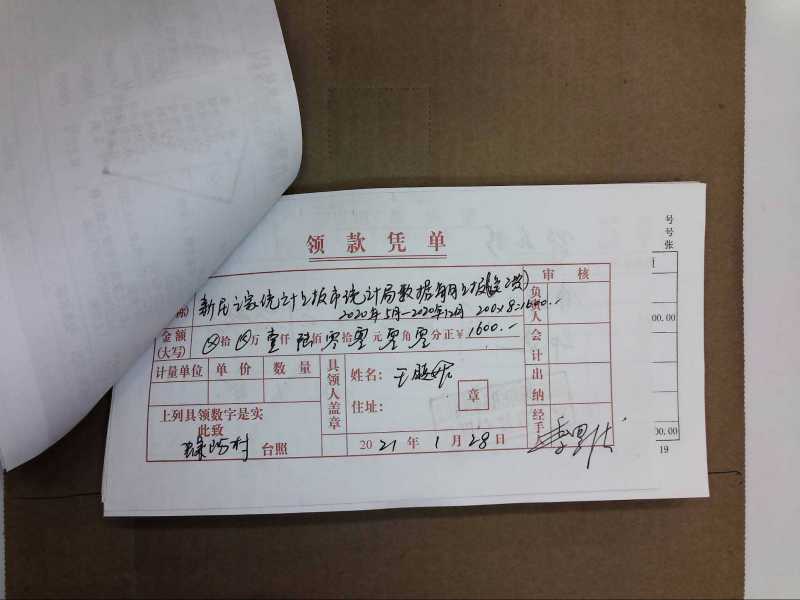 领款凭单
审核
新民之家统计上报市统计局数据
称
2020年5月-2020年12月 200×8=1600.-
负责人
金额(大写) ⊗拾⊗万壹仟陆佰零拾零元零角零分正￥1600.-
会计
计量单位 单价 数量
具领人盖章
姓名:
住址:
章
出纳
上列具领数字是实
此致
村 台照
2021年1月28日
经手人
号
号
张
00.00
00.00
19